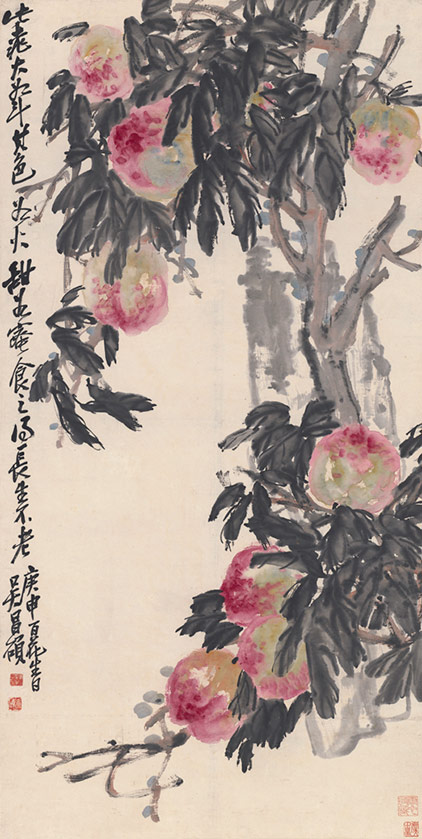 此桃大如斗其色如火甜如蜜食之得長生不老
庚申百花生日
吳昌碩